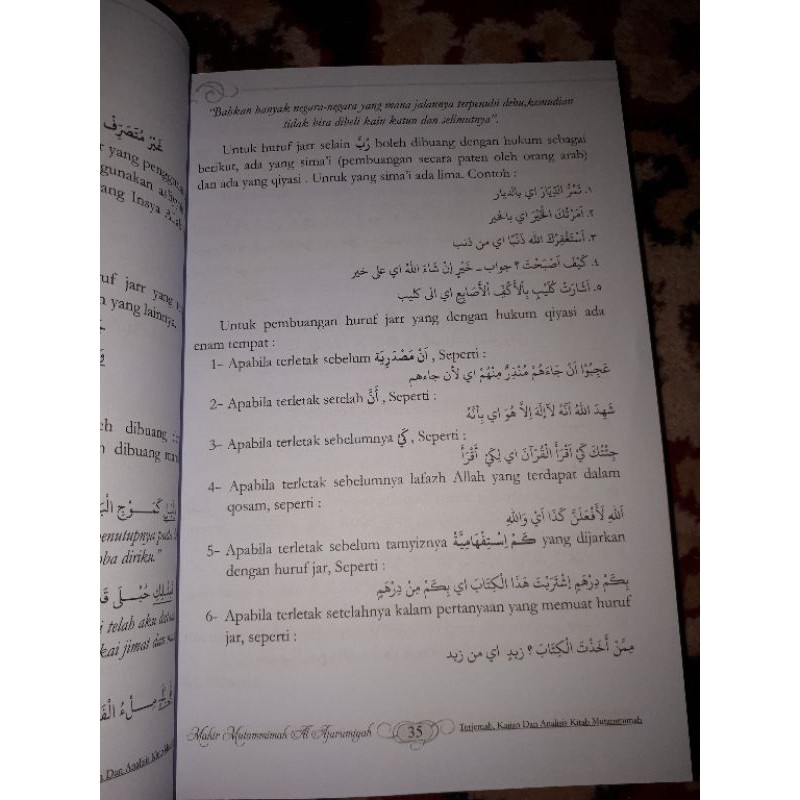 غَيْرِ مُتَصَرِّفْ
yang
gunakan
ang Insya
uf jarr yang
n yang lainnya.
dibuang
dibuang
كَمَوْجِ
penutupnya pada
oba diriku."
telah aku
kai jimat dan
مِلْءُ
"Bahkan banyak negara-negara yang mana jalannya terpenuhi debu,kemudian
tidak bisa dibeli kain katun dan selimutnya".
Untuk huruf jarr selain رُبَّ boleh dibuang dengan hukum sebagai
berikut, ada yang sima'i (pembuangan secara paten oleh orang arab)
dan ada yang qiyasi . Untuk yang sima'i ada lima. Contoh :
١. تَمُرُّ الدِّيَارَ اي بالديار
٢. اَمَرْتُكَ الْخَيْرَ اي بالخير
٣. اَسْتَغْفِرُكَ الله ذَنْبًا اي من ذنب
٤. كَيْفَ اَصْبَحْتَ ؟ جواب ـ خَيْرٍ اِنْ شَاءَ اللهُ اي على خير
٥. اَشَارَتْ كُلَيْبٍ بِالْأَكُفِّ الْأَصَابِعُ اي الى كليب
Untuk pembuangan huruf jarr yang dengan hukum qiyasi ada
enam tempat :
1- Apabila terletak sebelum اَنْ مَصْدَرِيَة , Seperti :
عَجِبُوْا اَنْ جَاءَهُمْ مُنْذِرٌ مِنْهُمْ اي لأن جاءهم
2- Apabila terletak setelah أَنَّ , Seperti :
شَهِدَ اللهُ اَنَّهُ لَاإِلَهَ اِلَّا هُوَ اي بِأَنَّهُ
3- Apabila terletak sebelumnya كَيْ , Seperti :
جِئْتُكَ كَيْ اَقْرَأَ الْقُرْآنَ اي لِكَيْ أَقْرَأَ
4- Apabila terletak sebelumnya lafazh Allah yang terdapat dalam
qosam, seperti :
اَللهِ لَأَفْعَلَنَّ كَذَا اَيْ وَاللهِ
5- Apabila terletak sebelum tamyiznya كَمْ اِسْتِفْهَامِيَّةْ yang dijarkan
dengan huruf jar, Seperti :
بِكَمْ دِرْهَمٍ اِشْتَرَيْتَ هَذَا الْكِتَابَ اي بِكَمْ مِنْ دِرْهَمٍ
6- Apabila terletak setelahnya kalam pertanyaan yang memuat huruf
jar, seperti :
مِمَّنْ أَخَذْتَ الْكِتَابَ ؟ زيدٍ اي من زيد
Mahir Mutammimah Al Ajurumiyyah 35 Terjemah, Kajian Dan Analisis Kitab Mutammimah